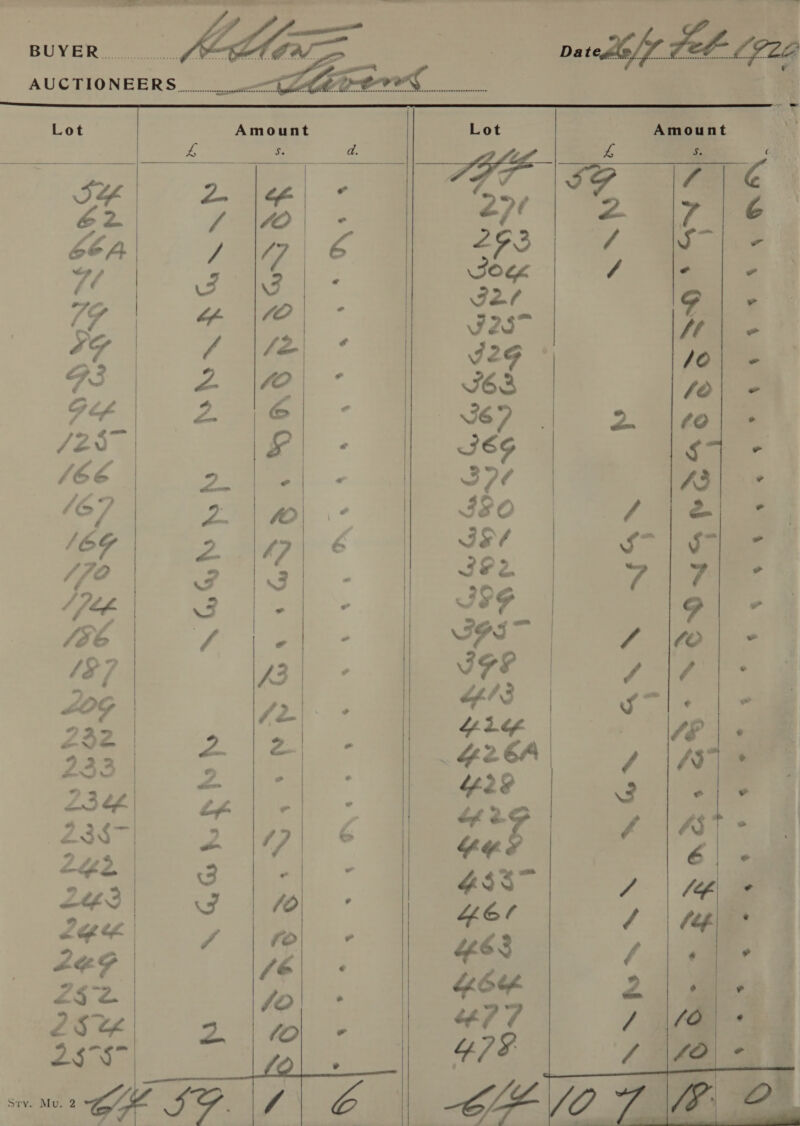 BUYER
Date 26/7 Feb
AUCTIONEERS Stevens
Lot Amount
£ s. d.
54 2 4 -
62 1 10 -
66A 1 17 6
71 3 3 -
79 4 10 -
89 1 12 -
93 2 10 -
94 2 6 -
125 8 -
166 2 - -
167 2 10 -
169 2 17 6
170 3 3 -
174 3 - -
186 1 - -
187 13 -
209 12 -
232 2 2 -
233 2 - -
234 4 - -
235 2 17 6
242 3 - -
243 3 10 -
244 1 10 -
249 16 -
252 10 -
254 2 10 -
255 10 -
Sty. Mu. 2 C/F 59. 1 6
Lot Amount
£ s.
B/F 59 1 6
271 2 7 6
293 1 5 -
304 1 - -
321 9 -
325 11 -
329 10 -
363 10 -
367 2 10 -
369 5 -
371 13 -
380 1 2 -
381 5 5 -
382 7 7 -
389 9 -
395 1 10 -
398 1 1 -
413 5 - -
414 18 -
426A 1 15 -
428 3 - -
429 1 15 -
448 6 -
453 1 14 -
461 1 14 -
463 1 - -
464 2 - -
477 1 10 -
478 1 10 -
C/F 107 18 0